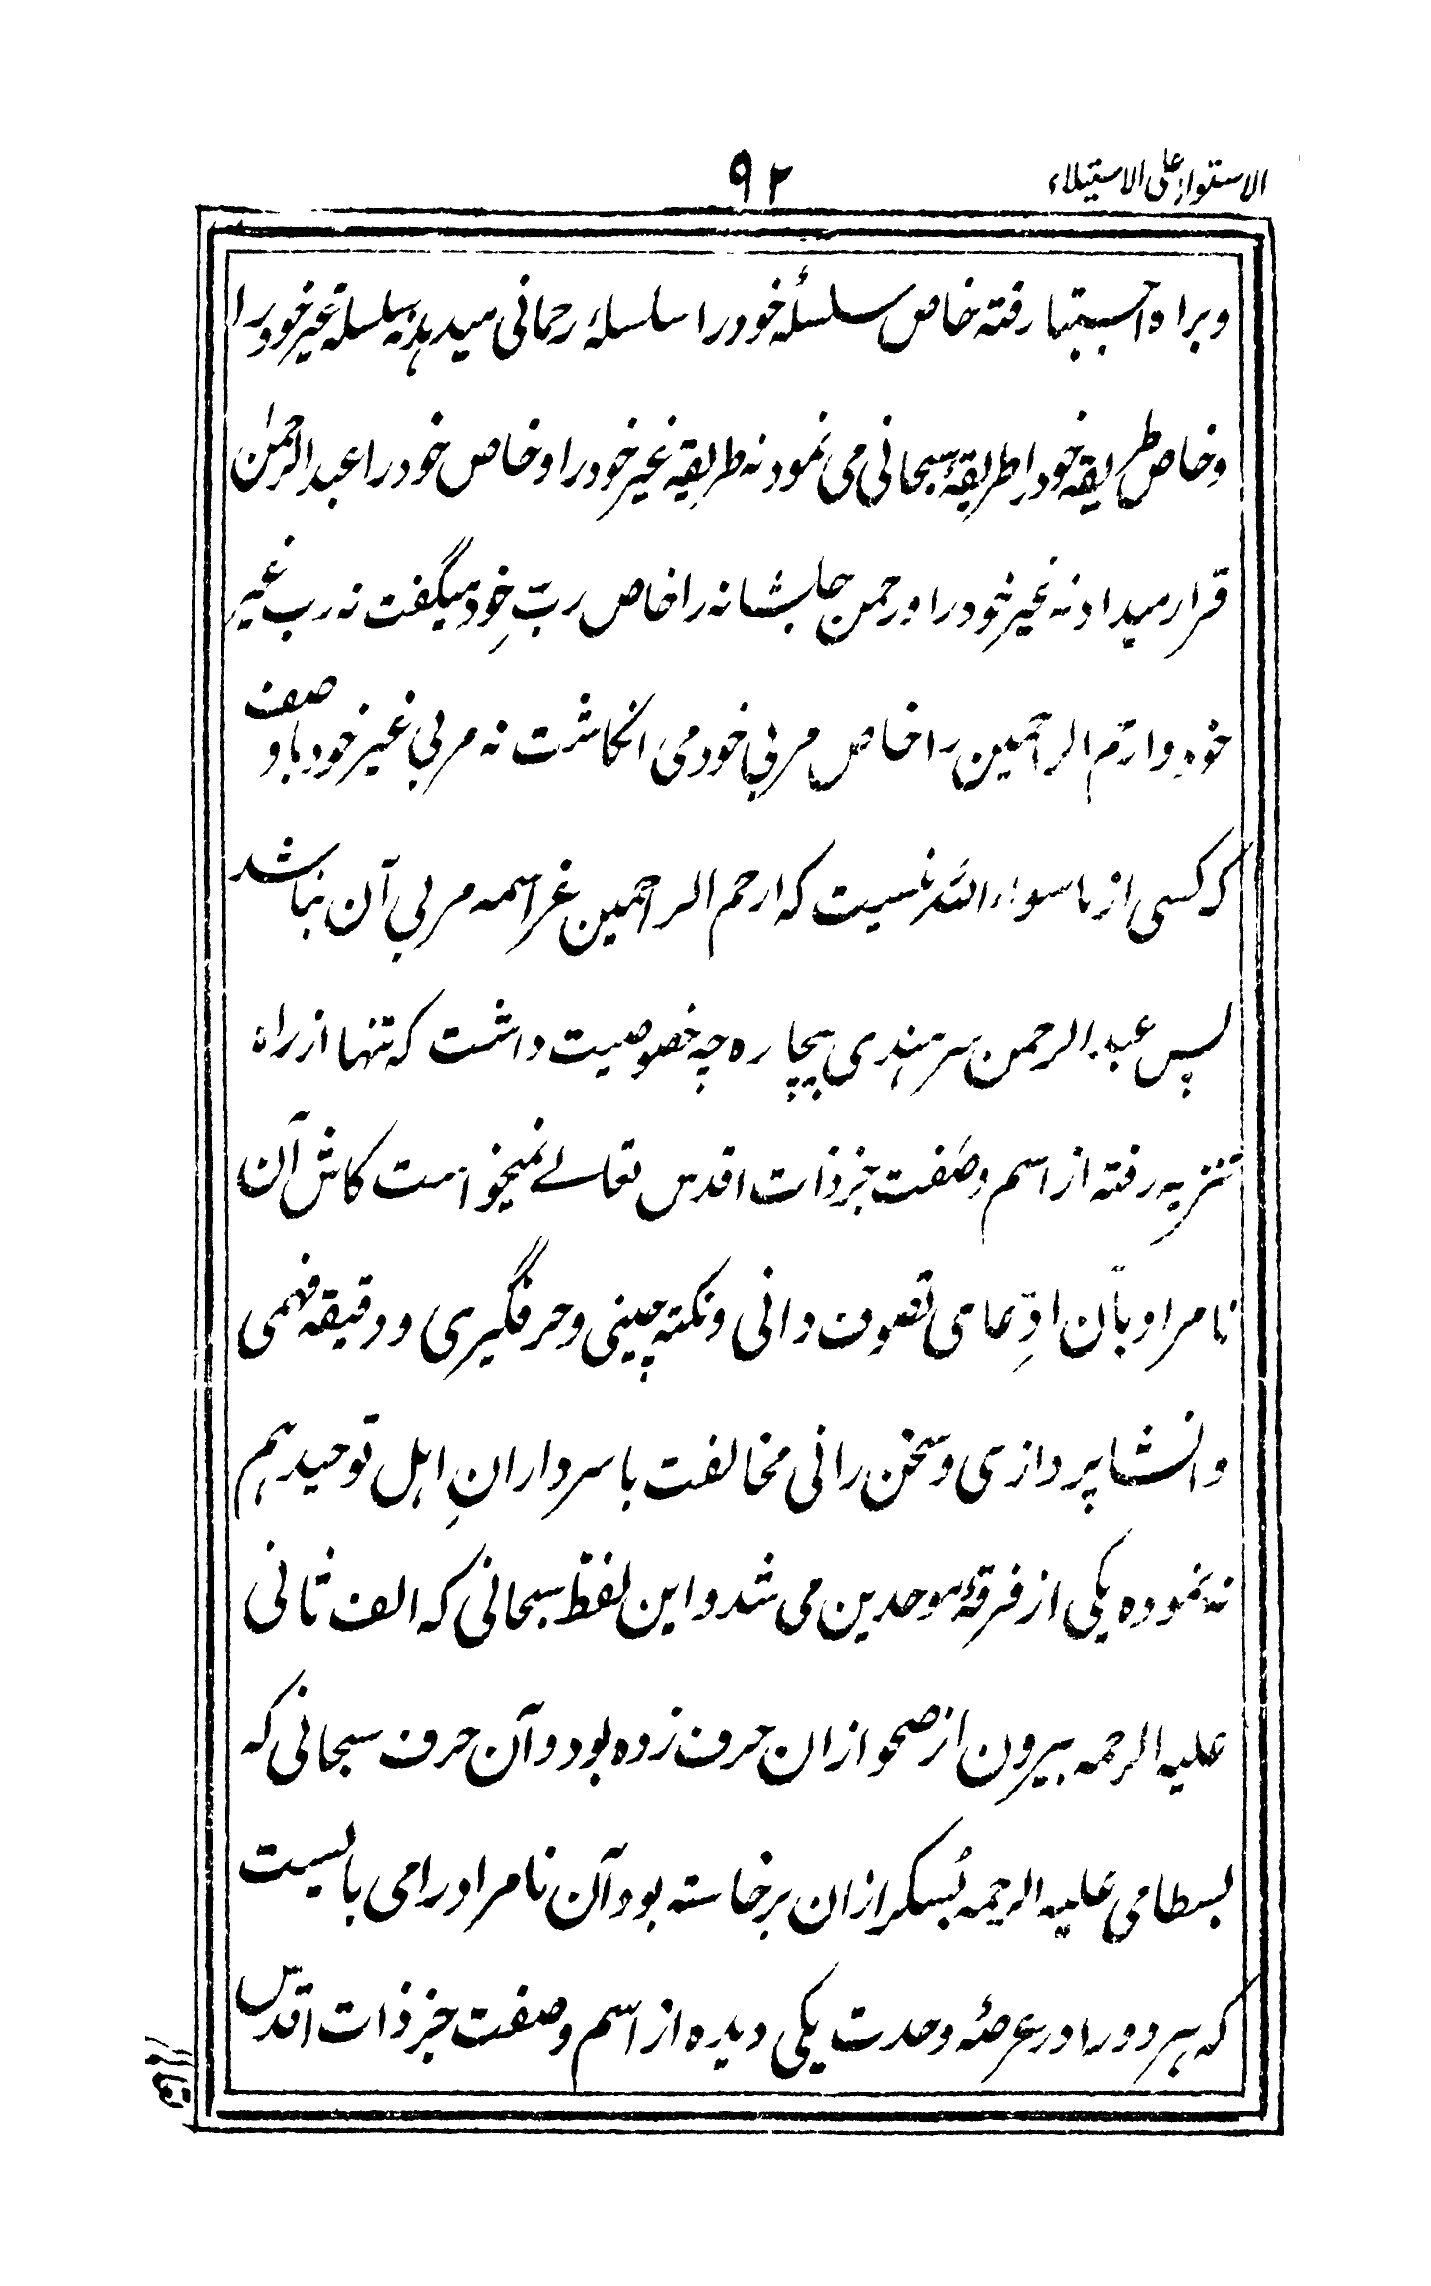 الاستواء علی الاستیلاء
۹۲
و براه رفته خاص سلسلهٔ خود را سلسلهٔ رحمانی میدید نه سلسله غیر خود را
و خاص طریقه خود را طریقهٔ سبحانی می نمود نه طریقه غیر خود را و خاص خود را عبد الرحمٰن
قرار میداد نه غیر خود را و رحمن جلشانه را خاص ربِّ خود میگفت نه رب غیر
خود و ارحم الراحمین را خاص مربی خود می انگاشت نه مربی غیر خود با وصف
که کسی از ماسواء الله نیست که ارحم الراحمین عز اسمه مربی آن نباشد
پس عبد الرحمن سرهندی بیچاره چه خصوصیت داشت که تنها از راه
تنزیه رفته از اسم و صفت جز ذات اقدس تعالے نمیخواست کاش آن
نامراد بآن ادّعای تصوف دانی و نکته چینی و حرفگیری و دقیقه فهمی
و انشا پردازی و سخن رانی مخالفت با سردارانِ اهل توحید هم
نه نموده یکی از فرقهٔ موحدین می شد و این لفظ سبحانی که الف ثانی
علیه الرحمه بیرون از صحو ازان حرف زده بود و آن حرف سبحانی که
بسطامی علیه الرحمه بسکر ازان برخاسته بود آن نامراد را می بایست
که هر دو را در عرصهٔ وحدت یکی دیده از اسم و صفت جز ذات اقدس